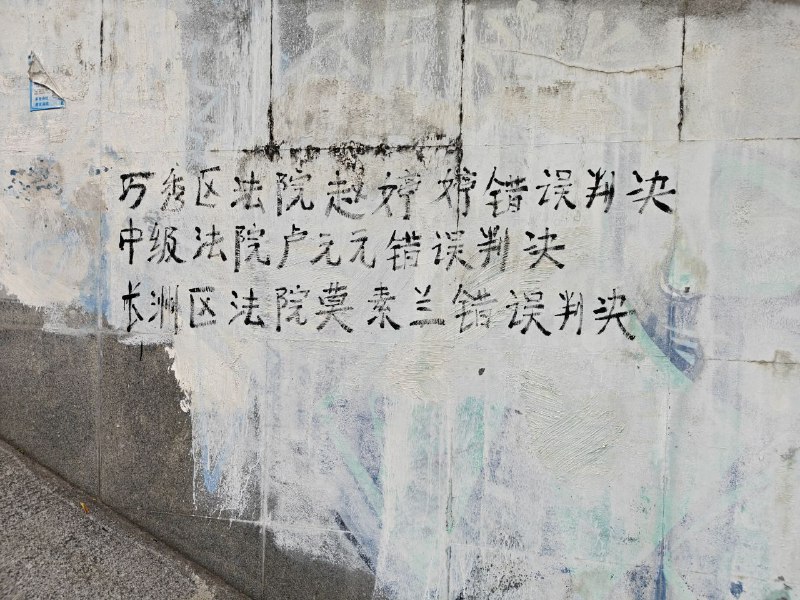 万秀区法院赵婷婷错误判决
中级法院卢元元错误判决
长洲区法院莫素兰错误判决